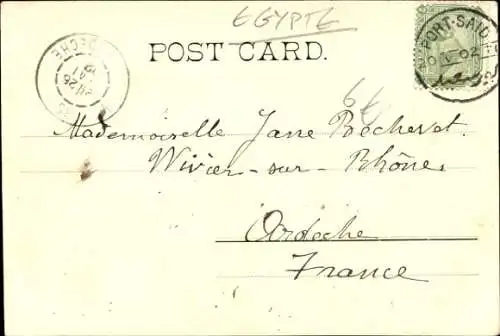 EGYPTE
POST CARD.
PORT-SAID
02
Mademoiselle Jane Bechevet.
Wivier-sur-Rhône,
Ardèche
France